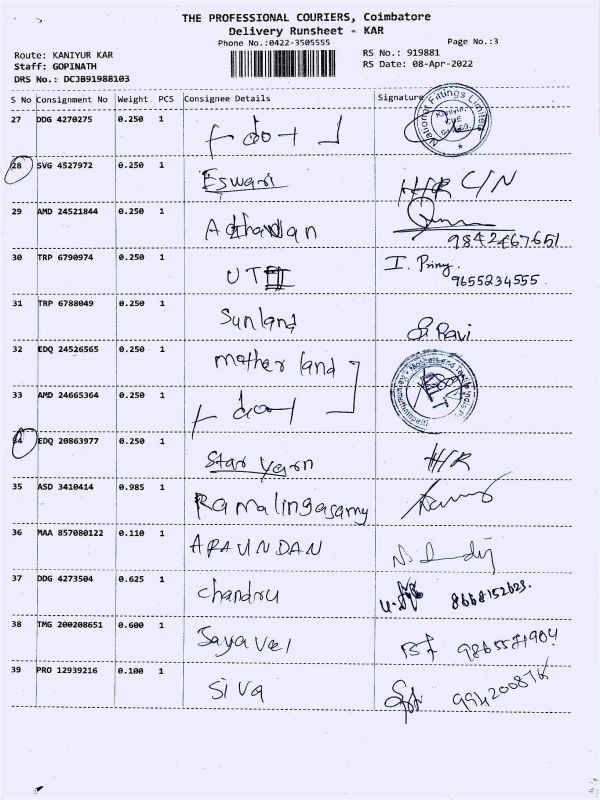 THE PROFESSIONAL COURIERS, Coimbatore
Delivery Runsheet - KAR
Phone No.:0422-3505555
Page No.:3
Route: KANIYUR KAR
RS No.: 919881
Staff: GOPINATH
RS Date: 08-Apr-2022
DRS No.: DCJB91988103
S No Consignment No Weight PCS Consignee Details Signature
27 DDG 4270275 0.250 1 do
National Fittings Limited
28 SVG 4527972 0.250 1 Eswari H/R C/N
29 AMD 24521844 0.250 1 9842467651
30 TRP 6790974 0.250 1 I. Priny. 9655234555.
31 TRP 6788049 0.250 1 Sunland Ravi
32 EDQ 24526565 0.250 1 mother land
33 AMD 24665364 0.250 1 do
34 EDQ 20863977 0.250 1 Star yarn H/R
35 ASD 3410414 0.985 1 Ramalingasamy
36 MAA 857080122 0.110 1 ARAVINDAN
37 DDG 4273504 0.625 1 chandru 8668152623.
38 TMG 200208651 0.600 1 Jayavel
39 PRO 12939216 0.100 1 Siva